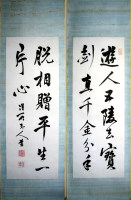 遊人五陵去寶
劍直千金分手
脫相贈平生一
片心